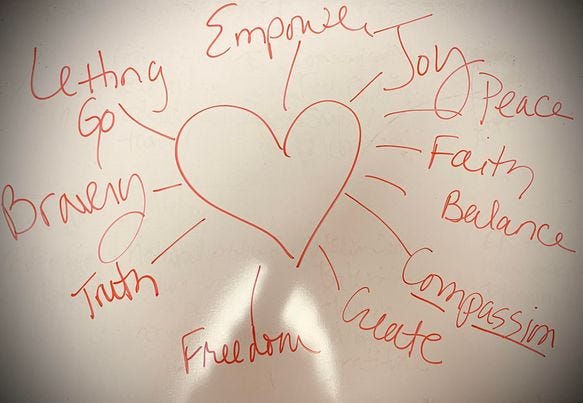 Empower
Joy
Peace
Faith
Balance
Compassion
Create
Freedom
Truth
Bravery
Letting
Go